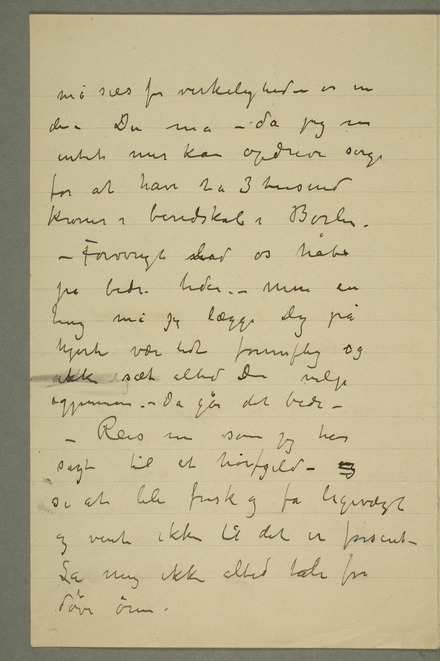 må sees for virkeligheden er en
den Du må – da jeg nu
intet mer kan opdrive sørge
for at have 2 a 3 tusend
kroner i beredskab i Berlin.
– Forøvrigt lad os håbe
på bedre tider. – men en
ting må jeg lægge Dig på
hjerte vær lidt fornuftig og
ikke sæt altid Din vilje
igjennem. – Da går det bedre –
– Reis nu som jeg har
sagt til et høifjeld –
se at bli frisk og få ligevægt
og vent ikke til det er forsent –
La mig ikke altid tale for
døve ören.